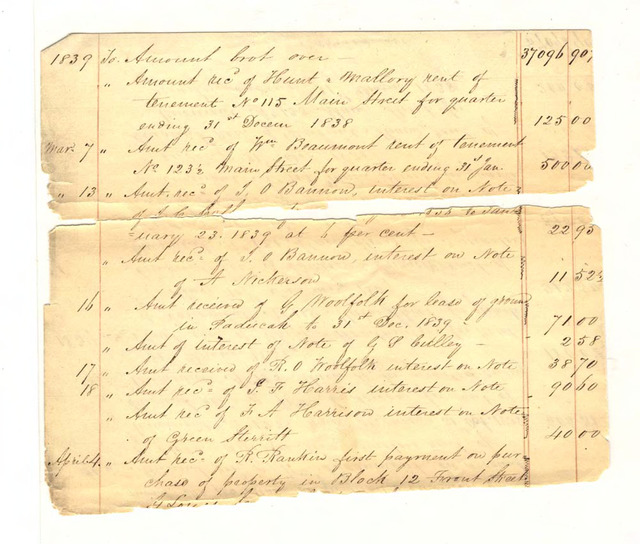 1839 To Amount brot over — 37096 90
" Amount recd of Hunt & Mallory rent of
tenement No 115 Main Street for quarter
ending 31st Decem 1838 125 00
Mar. 7 " Amt recd of Wm Beaumont rent of tenement
No 123½ Main Street for quarter ending 31st Jan 500 00
" 13 " Amt recd of J. O Bannon, interest on Note
of
uary 23. 1839 at 6 per cent — 22 95
" Amt recd of J. O Bannon, interest on Note
of A Nickerson 11 52½
16 " Amt received of G Woolfolk for lease of ground
in Paducah to 31st Dec. 1839 71 00
" Amt of interest of Note of G S — 2 58
17 " Amt received of R. O Woolfolk interest on Note 38 70
18 " Amt recd of F Harris interest on Note 90 60
" Amt recd of F. A Harrison interest on Note
of Green Sterritt 40 00
April 4. " Amt recd of R. Rankin first payment on pur
chase of property in Block 12 Front Street